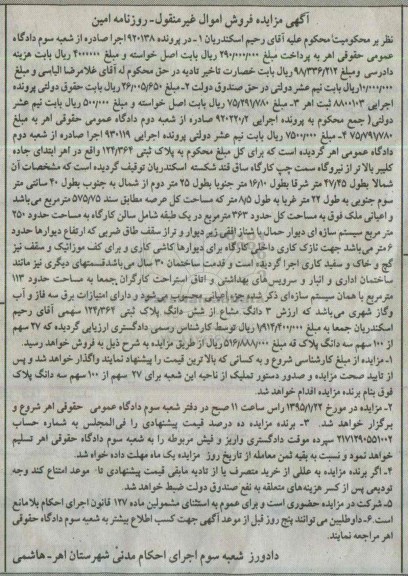 آگهی مزایده فروش اموال غیرمنقول- روزنامه امین
نظر بر محکومیت محکوم علیه آقای رحیم اسکندریان ۱- در پرونده ۹۲۰۱۳۸ اجرا صادره از شعبه سوم دادگاه
عمومی حقوقی اهر به پرداخت مبلغ ۴۹۰/۰۰۰/۰۰۰ ریال بابت اصل خواسته و مبلغ ۴۰۰۰۰۰۰ ریال بابت هزینه
دادرسی ومبلغ ۹۸/۳۳۶/۲۱۲ ریال بابت خصارت تاخیر تادیه در حق محکوم له آقای غلامرضا الیاسی و مبلغ
۱۰/۰۰۰/۰۰۰ریال بابت نیم عشر دولتی در حق صندوق دولت ۲- مبلغ ۲۶/۰۰۵/۶۵۰ ریال بابت حقوق دولتی پرونده
اجرایی ۸۸۰۰۱۰۳ ثبت اهر ۳- مبلغ ۷۵/۲۹۱/۷۸۰ ریال بابت اصل خواسته و مبلغ ۵۰۰/۰۰۰ ریال بابت نیم عشر
دولتی( جمع محکوم به پرونده اجرایی ۹۲۰۲۲۰/۲ صادره از شعبه دوم دادگاه عمومی حقوقی اهر به مبلغ
۷۵/۷۹۱/۷۸۰ ۴- مبلغ ۷۵۰۰/۰۰۰ ریال بابت نیم عشر دولتی پرونده اجرایی ۹۳۰۱۱۹ اجرا صادره از شعبه دوم
دادگاه عمومی اهر گردیده است که برای کل مبلغ محکوم به پلاک ثبتی ۱۲۴/۳۶۴ واقع در اهر ابتدای جاده
کلیبر بالاتر از نیروگاه سمت چپ کارگاه ساق قند شکسته اسکندریان توقیف گردیده است که مشخصات آن
شمالا بطول ۴۷/۴۵ متر شرقا بطول ۱۶/۱۰ متر جنوبا بطول ۲۵ متر دوم از شمال به جنوب بطول ۴۰ سانتی متر
سوم جنوبی به طول ۲۲ متر غربا به طول ۸/۵ متر که مساحت کل عرصه مطابق سند ۵۷۵/۷۵ مترمربع می باشد
و اعیانی ملک فوق به مساحت کل حدود ۳۶۳ مترمربع در یک طبقه شامل سالن کارگاه به مساحت حدود ۲۵۰
متر مربع سیستم سازه ای دیوار حمال با شناژ افقی زیر دیوار و تراز سقف طاق ضربی که ارتفاع دیوارها حدود
۶ متر می باشد جهت نازک کاری داخلی کارگاه برای دیوارها کاشی کاری و برای کف موزائیک و سقف نیز
گچ و خاک و سفید کاری اجرا گردیده است و قدمت ساختمان ۳۰ سال می باشد.قسمتهای دیگری نیز مانند
ساختمان اداری و انبار و سرویس های بهداشتی و اتاق استراحت کارگران جمعا به مساحت حدود ۱۱۳
مترمربع با همان سیستم سازه ای ذکر شده جزء اعیانی محسوب می شود و دارای امتیازات برق سه فاز و آب
وگاز شهری می باشد که ارزش ۳ دانگ مشاع از شش دانگ پلاک ثبتی ۱۲۴/۳۶۴ سهمی آقای رحیم
اسکندریان جمعا به مبلغ ۱/۹۱۴/۴۰۰/۰۰۰ ریال توسط کارشناس رسمی دادگستری ارزیابی گردیده که ۲۷ سهم
از ۱۰۰ سهم سه دانگ پلاک فه مبلغ ۵۱۶/۸۸۸/۰۰۰ ریال از طریق مزایده به شرح ذیل به فروش خواهد رسید.
۱- مزایده از مبلغ کارشناسی شروع و به کسانی که بالاترین قیمت را پیشنهاد نمایند واگذار خواهد شد و پس
از تایید صحت مزایده و صدور دستور تملیک از ناحیه این شعبه برای ۲۷ سهم از ۱۰۰ سهم سه دانگ پلاک
فوق بنام برنده مزایده اقدام خواهد شد.
۲- مزایده در مورخ ۱۳۹۵/۱/۲۲ راس ساعت ۱۱ صبح در دفتر شعبه سوم دادگاه عمومی حقوقی اهر شروع و
برگزار خواهد شد. ۳- برنده مزایده ده درصد قیمت پیشنهادی را فی المجلس به شماره حساب
۲۱۷۱۲۹۰۵۵۱۰۰۲ سپرده موقت دادگستری واریز و فیش مربوطه را به شعبه سوم دادگاه حقوقی اهر تسلیم
خواهد نمود و نسبت به بقیه ثمن معامله از تاریخ روز مزایده یک ماه مهلت داده خواه شد.
۴- اگر برنده مزایده به عللی از خرید متصرف یا از تادیه مابقی قیمت پیشنهادی تا موعد امتناع کند وجه
تودیعی پس از کسر هزینه های متعلقه به نفع صندوق دولت ضبط خواهد شد.
۵- شرکت در مزایده حضوری است و برای عموم به استثنای مشمولین ماده ۱۲۷ قانون اجرای احکام بلامانع
است ۶- داوطلبین می توانند پنج روز قبل از موعد آگهی جهت کسب اطلاع بیشتر به شعبه سوم دادگاه حقوقی
اهر مراجعه نمایند.
دادورز شعبه سوم اجرای احکام مدنی شهرستان اهر- هاشمی